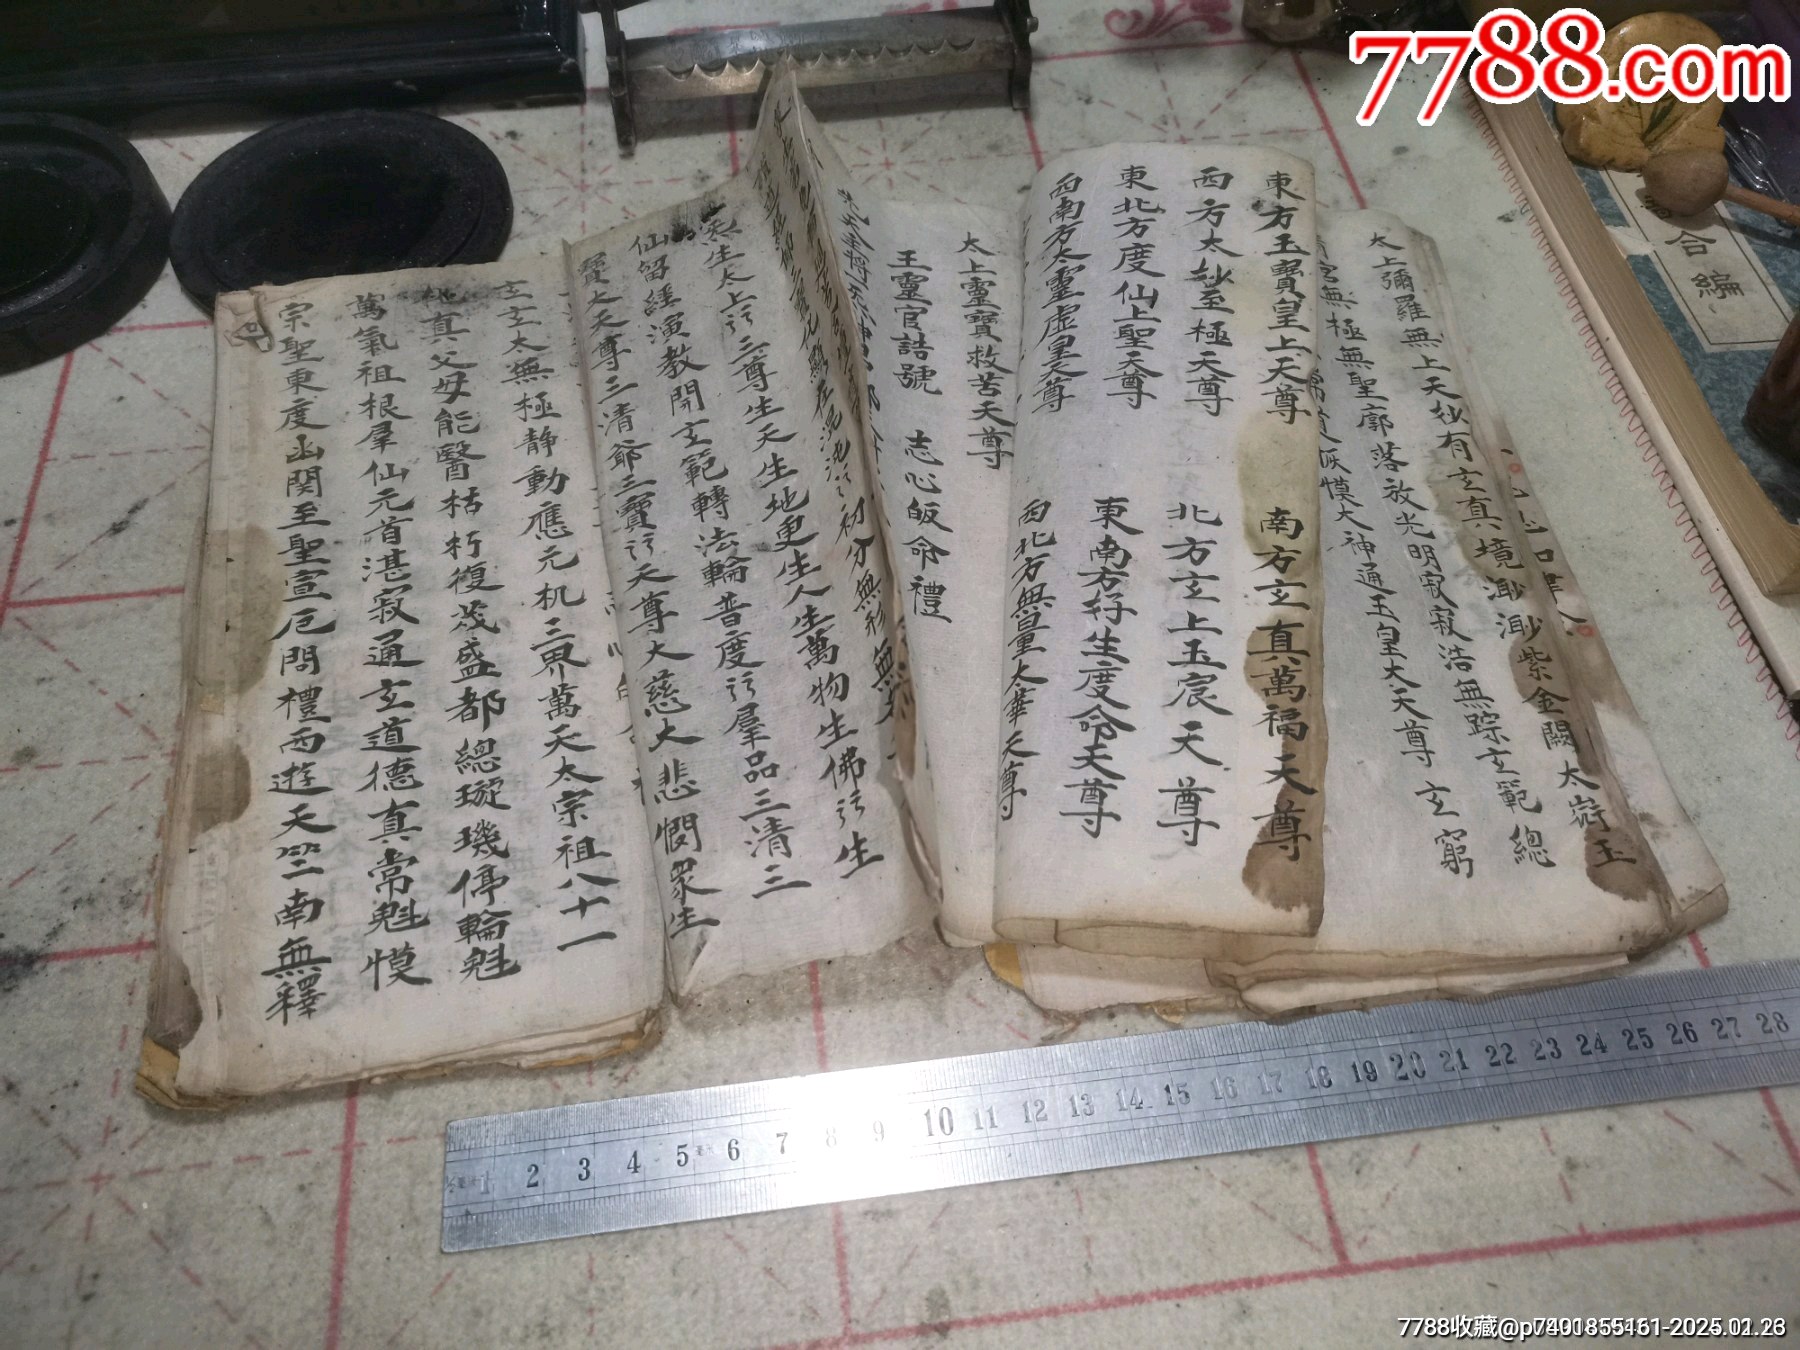 7788.com
合編
太上彌羅無上天玅有玄真境渺渺紫金闕太㣲玉
無極無聖廓落放光明寂寂浩無踪玄範總
大神通玉皇大天尊 玄窮
東方玉寶皇上天尊 南方玄真萬福天尊
西方太玅至極天尊 北方玄上玉宸天尊
東北方度仙上聖天尊 東南方好生度命天尊
西南方太靈虛皇天尊 西北方無量太華天尊
太上靈寶救苦天尊
王靈官誥號 志心皈命禮
初分無形無
生太上三尊生天生地更生人生萬物生佛生
仙留經演教開玄範轉法輪普度羣品三清三
寶大天尊三清爺三寶天尊大慈大悲憫眾生
玄玄太無極靜動應元机三界萬天太宗祖八十一
真父母能醫枯朽復茂盛都總璇璣停輪魁
萬氣祖根羣仙元首湛寂通玄道德真常魁慔
宗聖東度函関至聖宣尼問禮西遊天竺南無釋
1 2 3 4 5 6 7 8 9 10 11 12 13 14 15 16 17 18 19 20 21 22 23 24 25 26 27 28